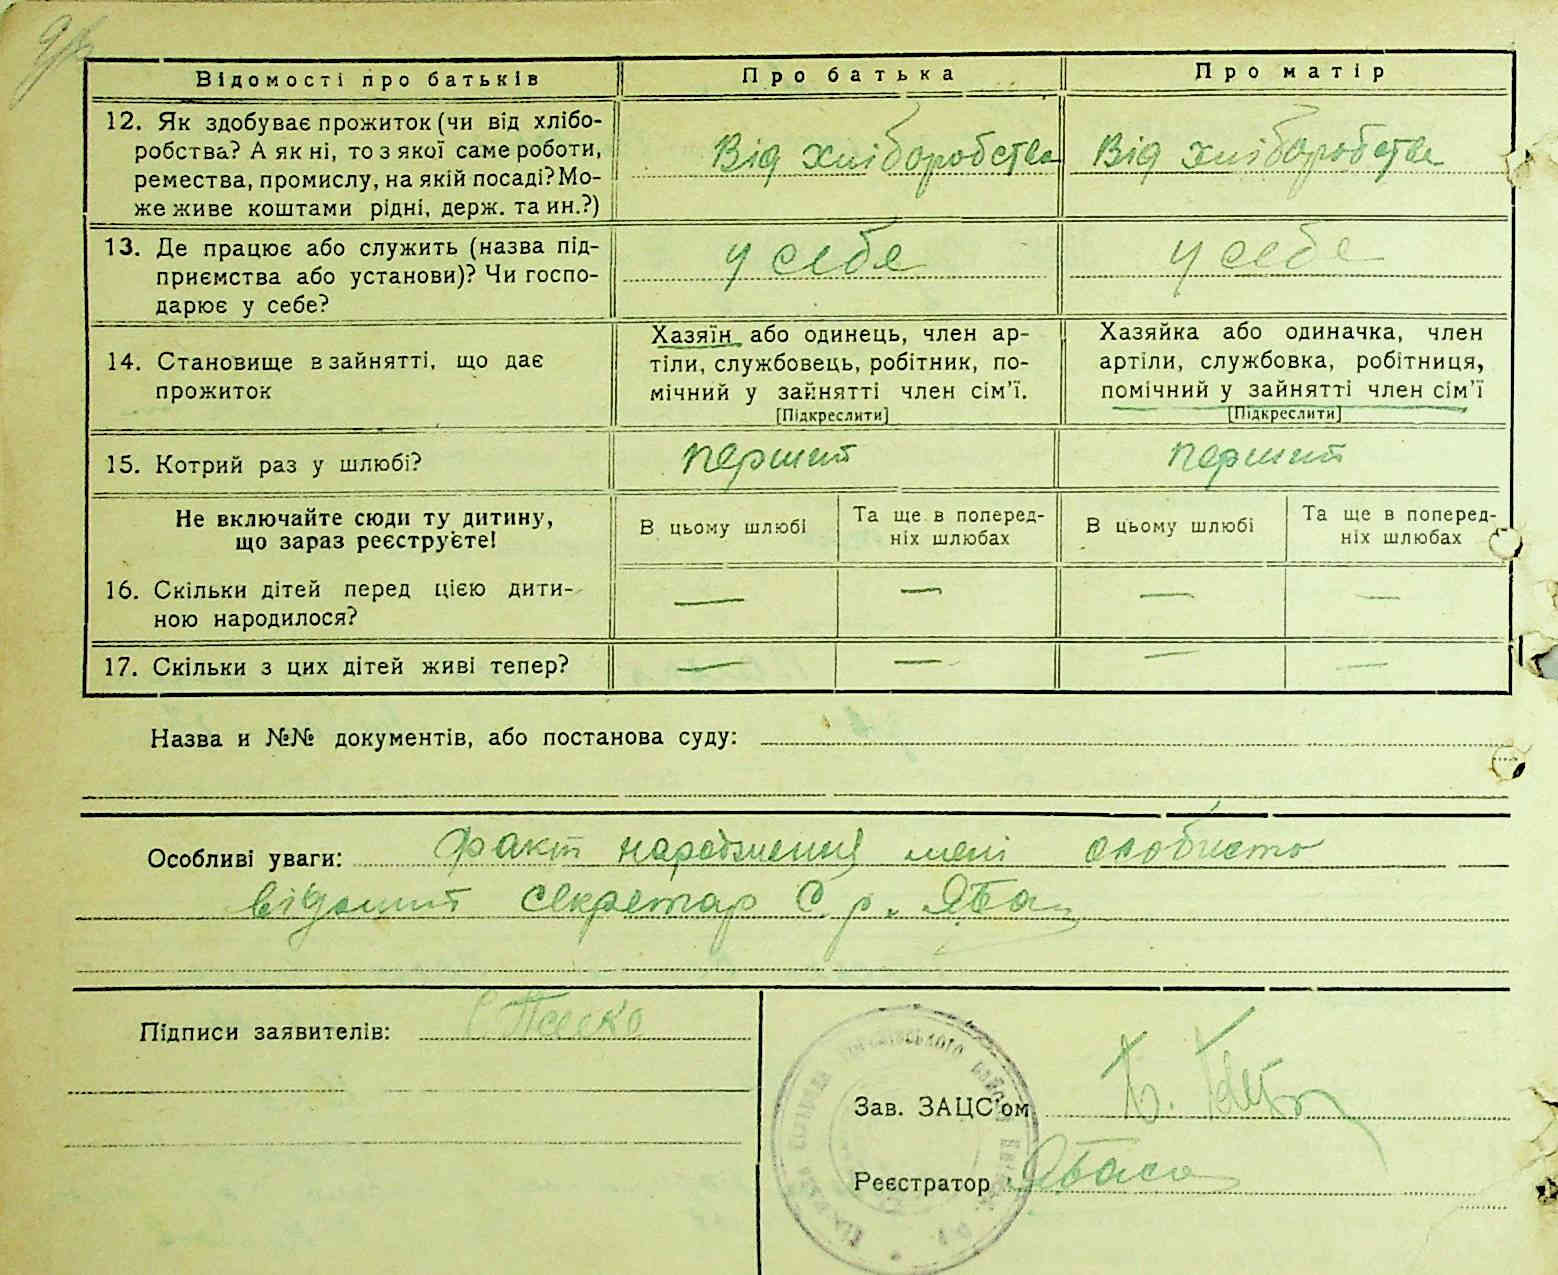 Відомості про батьків
Про батька
Про матір
12. Як здобуває прожиток (чи від хлібо-
робства? А як ні, то з якої саме роботи,
ремества, промислу, на якій посаді? Мо-
же живе коштами рідні, держ. та ин.?)
Від хліборобства
Від хліборобства
13. Де працює або служить (назва під-
приємства або установи)? Чи госпо-
дарює у себе?
у себе
у себе
14. Становище в зайнятті, що дає
прожиток
Хазяїн або одинець, член ар-
тіли, службовець, робітник, по-
мічний у зайнятті член сім’ї.
[Підкреслити]
Хазяйка або одиначка, член
артіли, службовка, робітниця,
помічний у зайнятті член сім’ї
[Підкреслити]
15. Котрий раз у шлюбі?
перший
перший
Не включайте сюди ту дитину,
що зараз реєструєте!
В цьому шлюбі
Та ще в поперед-
ніх шлюбах
В цьому шлюбі
Та ще в поперед-
ніх шлюбах
16. Скільки дітей перед цією дити-
ною народилося?
— — — —
17. Скільки з цих дітей живі тепер?
— — — —
Назва и №№ документів, або постанова суду:
Особливі уваги: факт народження мені особисто
відомий секретар С. р.
Підписи заявителів:
Зав. ЗАЦС'ом
Реєстратор